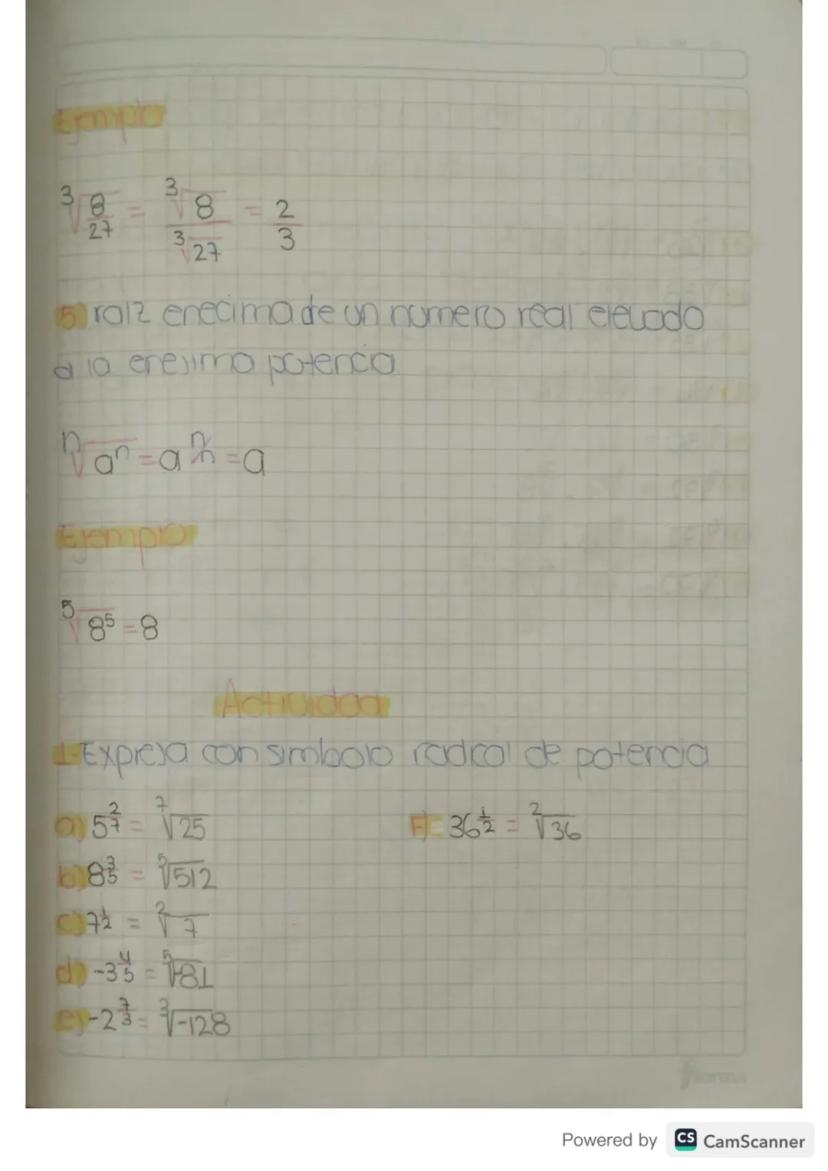 Ejemplo
³√8/27 = ³√8/³√27 = 2/3
5) raiz enecima de un numero real elevado
a la enesima potencia
ⁿ√aⁿ = a n/n = a
Ejemplo
⁵√8⁵ = 8
Actividad
1-Expresa con simbolo radical de potencia
a) 5^2/7 = ⁷√25
F) 36^1/2 = ²√36
b) 8^3/5 = ⁵√512
c) 7^1/2 = ²√7
d) -3^4/5 = ⁵√-81
e) -2^7/3 = ³√-128
norma
Powered by CS CamScanner